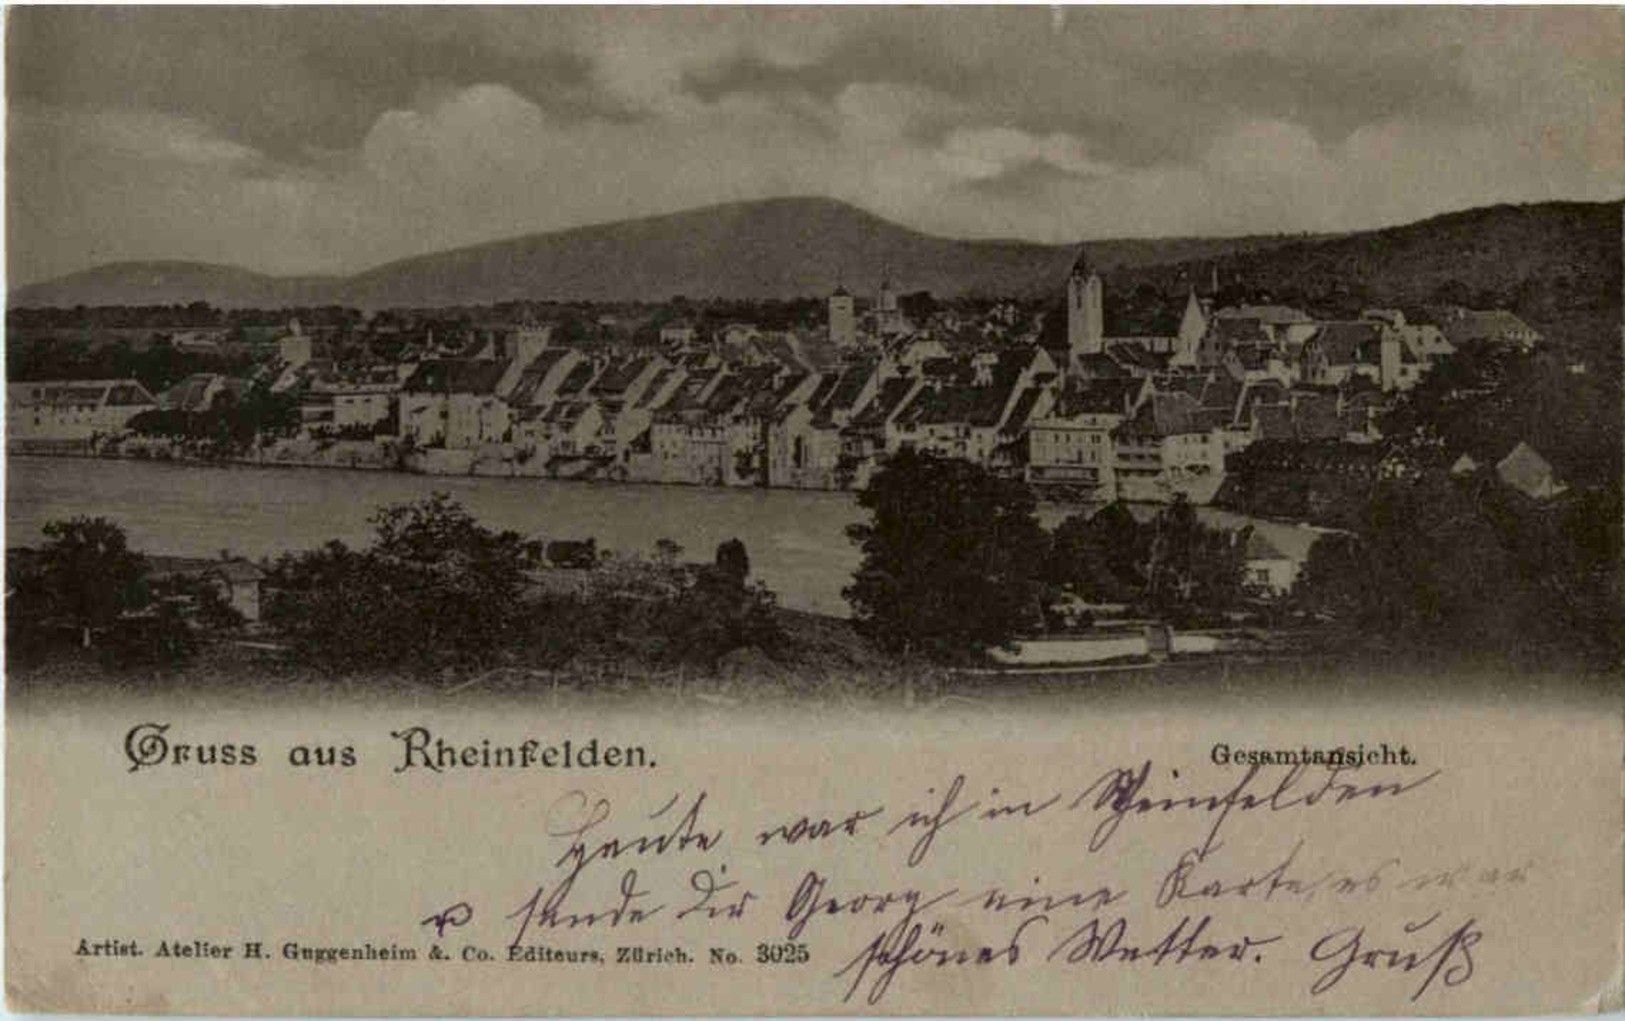 Gruss aus Rheinfelden.
Gesamtansicht.
Heute war ich in Rheinfelden
u sende Dir Georg eine Karte, es war
schönes Wetter. Gruß
Artist. Atelier H. Guggenheim &. Co. Editeurs, Zürich. No. 3025